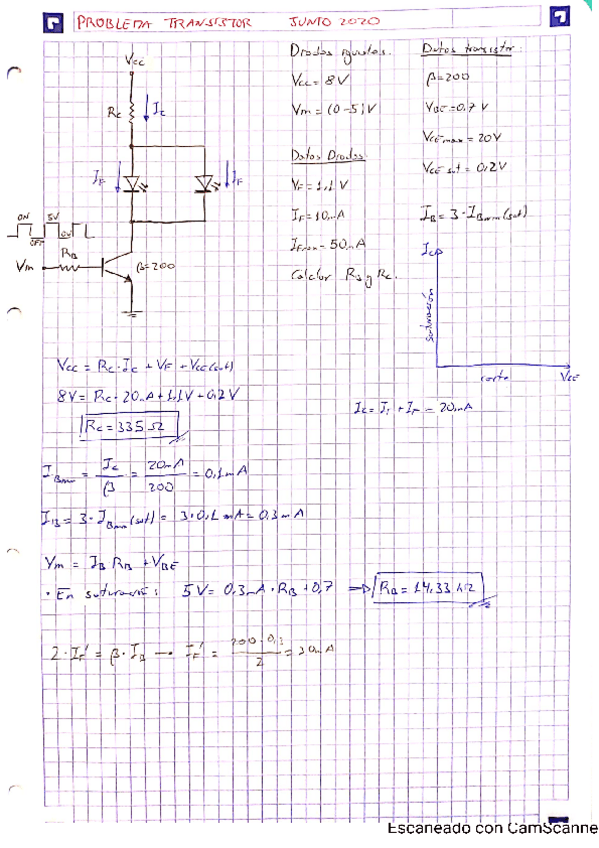 PROBLEMA TRANSISTOR JUNIO 2020
Diodos iguales.
Vcc = 8V
Vm = (0-5)V
Datos Diodos
VF = 1,1 V
IF = 10mA
IFmax = 50mA
Calcular RB y Rc.
Datos transistor:
β=200
VBE = 0,7 V
VCE max = 20V
VCE sat = 0,2V
IB = 3·IBmin(sat)
Vcc
Rc
Ic
IF
IF
ON
5V
OFF
0V
RB
Vm
β=200
Ic
saturación
corte
VCE
Vcc = Rc·Ic + VF + Vce(sat)
8V = Rc·20mA + 1,1V + 0,2V
Rc = 335 Ω
Ic = IF + IF = 20mA
IBmin = Ic/β = 20mA/200 = 0,1mA
IB = 3·IBmin(sat) = 3·0,1mA = 0,3mA
Vm = IB RB + VBE
· En saturación: 5V = 0,3mA·RB + 0,7 ⇒ RB = 14,33 kΩ
2·IF' = β·IB → IF' = 200·0,3/2 = 30mA
Escaneado con CamScanne